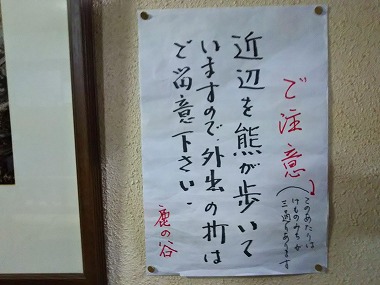 ご注意
(このあたりは
けものみちが
三通りあります)
近辺を熊が歩いて
いますので、外出の折は
ご留意下さい。
鹿の谷